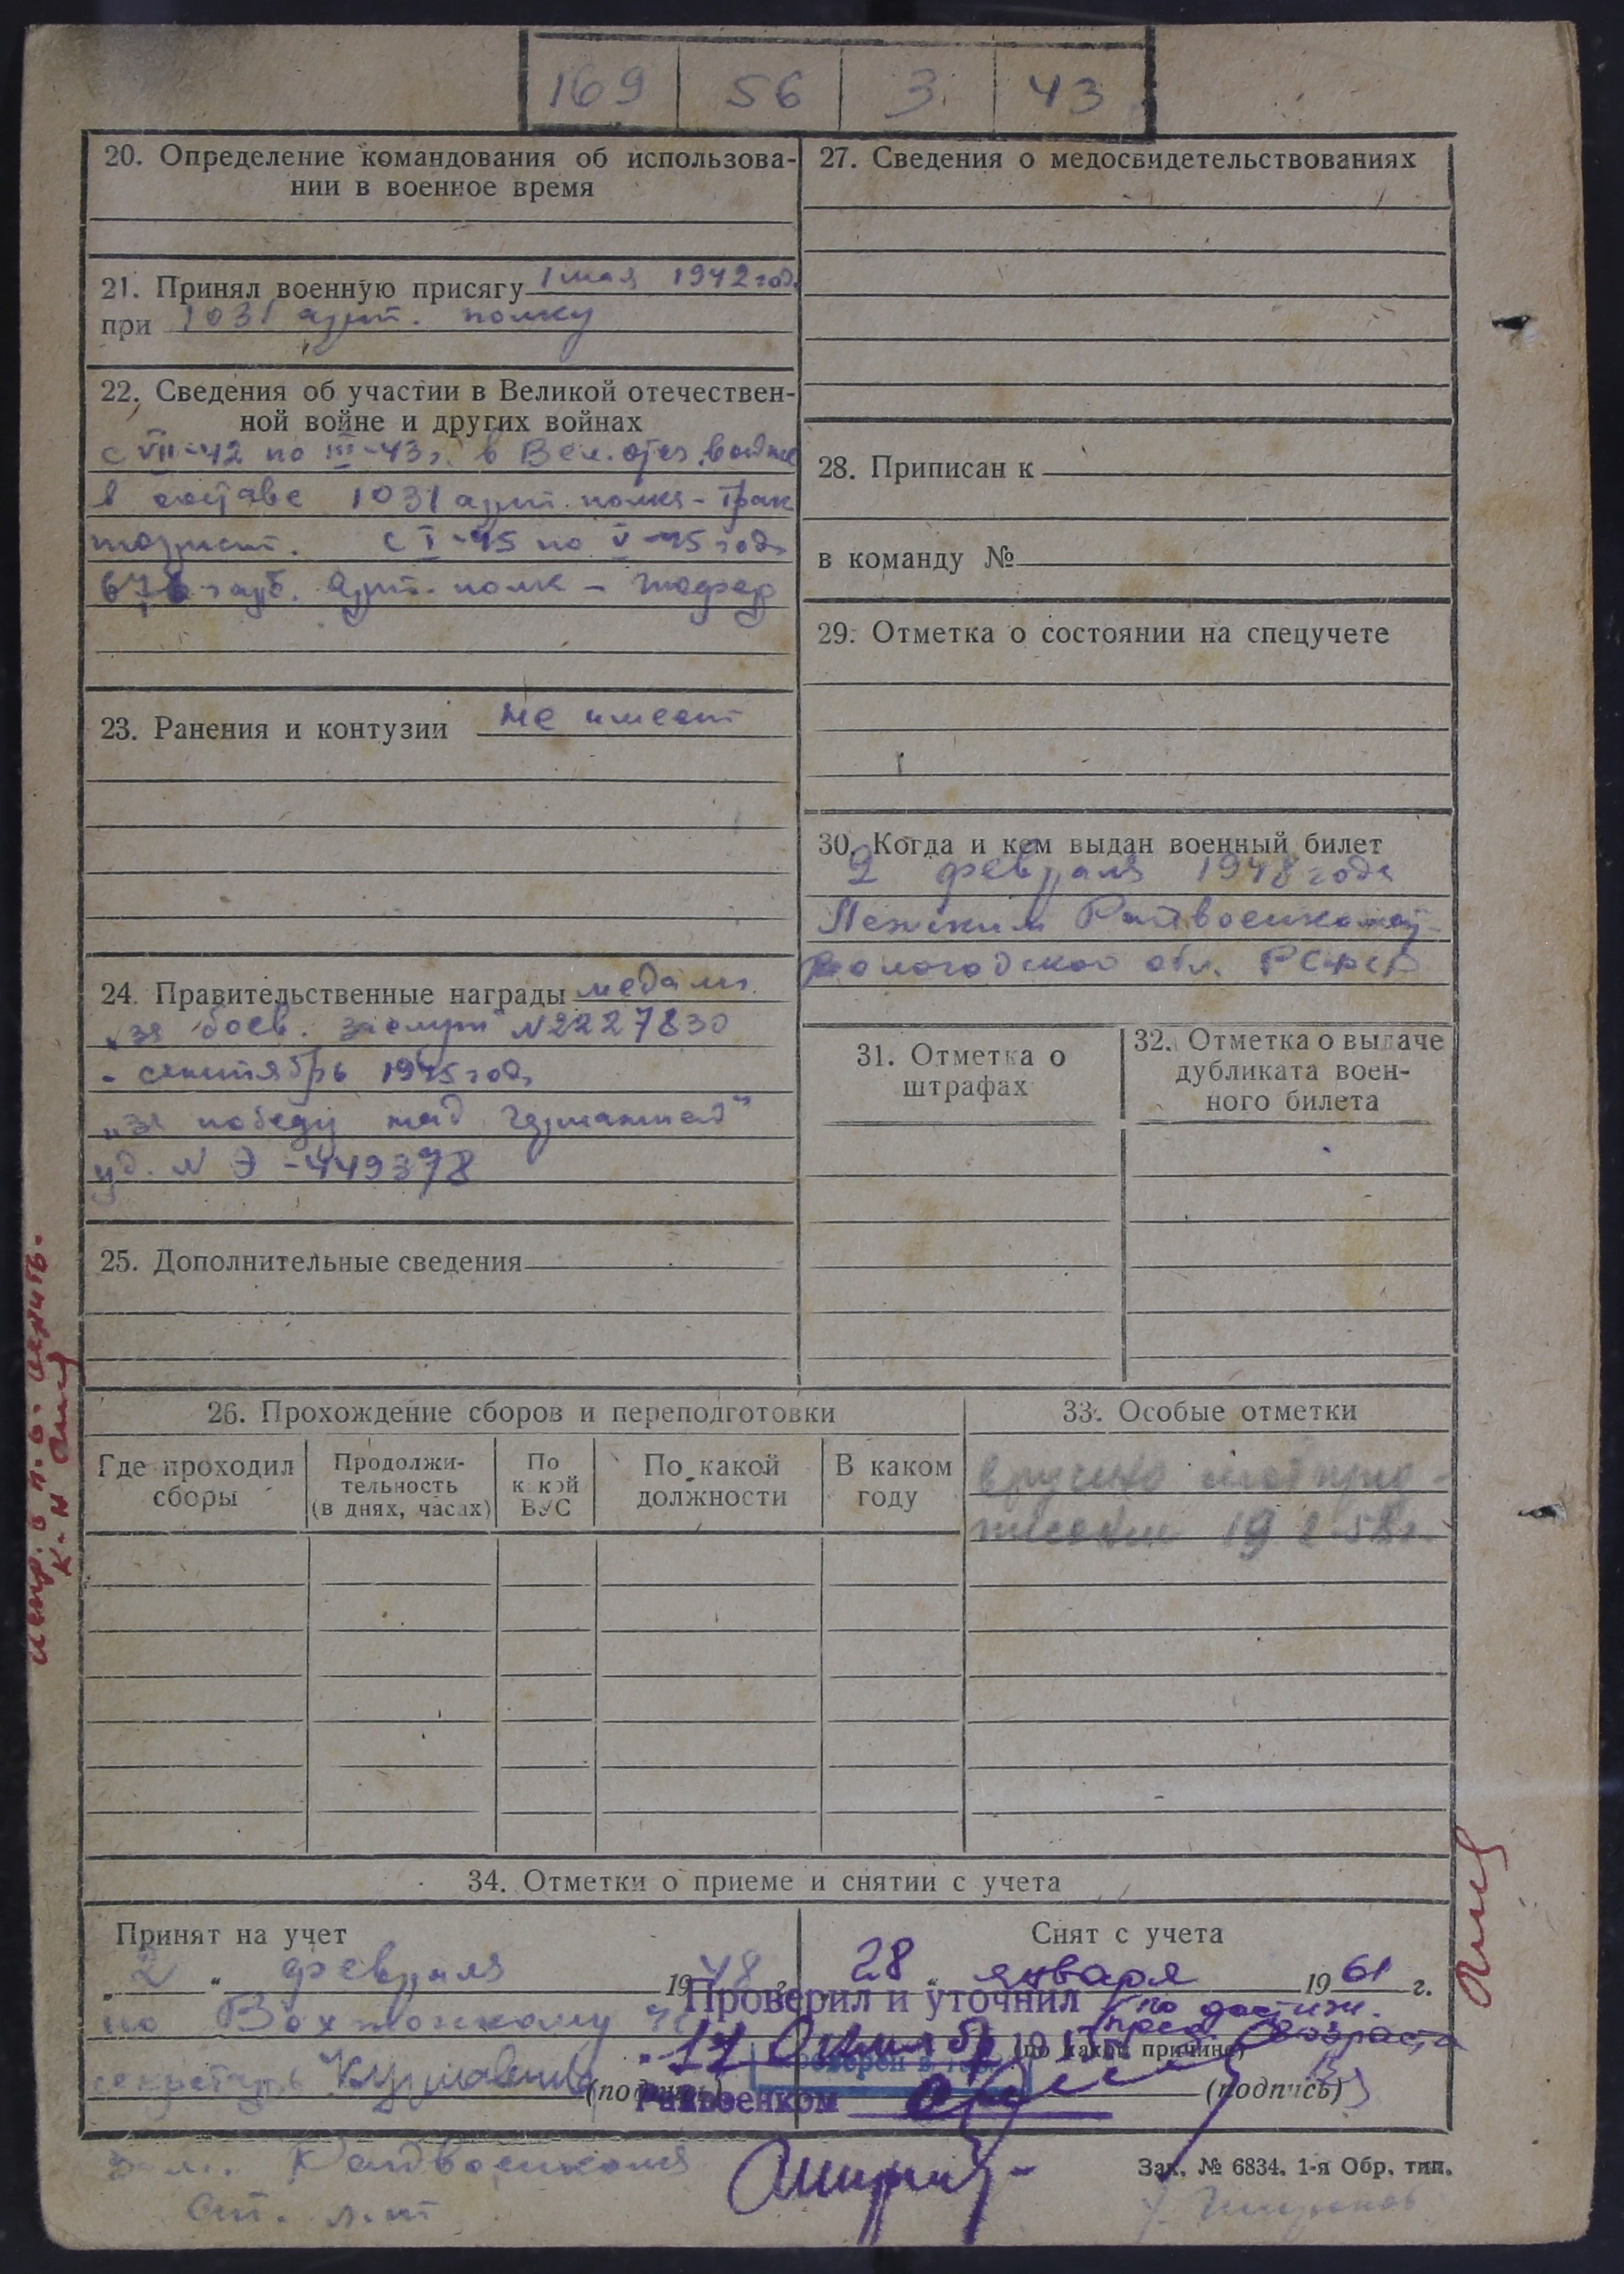 169 56 3 43
20. Определение командования об использова-
нии в военное время
21. Принял военную присягу 1 мая 1942 год
при 1031 арт. полку
22. Сведения об участии в Великой отечествен-
ной войне и других войнах
с VII-42 по III-43г. в Вел. отеч. войне
в составе 1031 арт. полка - трак
торист. с I-45 по V-45 года
арт. полк - шофер
23. Ранения и контузии не имеет
24. Правительственные награды медали
„за боев. заслуги" N2227830
- сентябрь 1945 года
„за победу над Германией"
уд. N Э-449378
25. Дополнительные сведения
26. Прохождение сборов и переподготовки
Где проходил сборы
Продолжи-
тельность
(в днях, часах)
По
какой
ВУС
По какой
должности
В каком
году
27. Сведения о медосвидетельствованиях
28. Приписан к
в команду №
29. Отметка о состоянии на спецучете
30. Когда и кем выдан военный билет
2 февраля 1948 года
Лежским Райвоенкомат
Вологодской обл. РСФСР
31. Отметка о
штрафах
32. Отметка о выдаче
дубликата воен-
ного билета
33. Особые отметки
вручено моб пред-
писание 19
34. Отметки о приеме и снятии с учета
Принят на учет
„2" февраля 1948 г.
по Вохтожскому
секретарь
(подпись)
Снят с учета
28 " января 1961 г.
по достиж.
пред. возраста
(по какой причине)
(подпись)
Проверил и уточнил
Райвоенком
Райвоенкома
Ст. л-т
Зак. № 6834. 1-я Обр. тип.